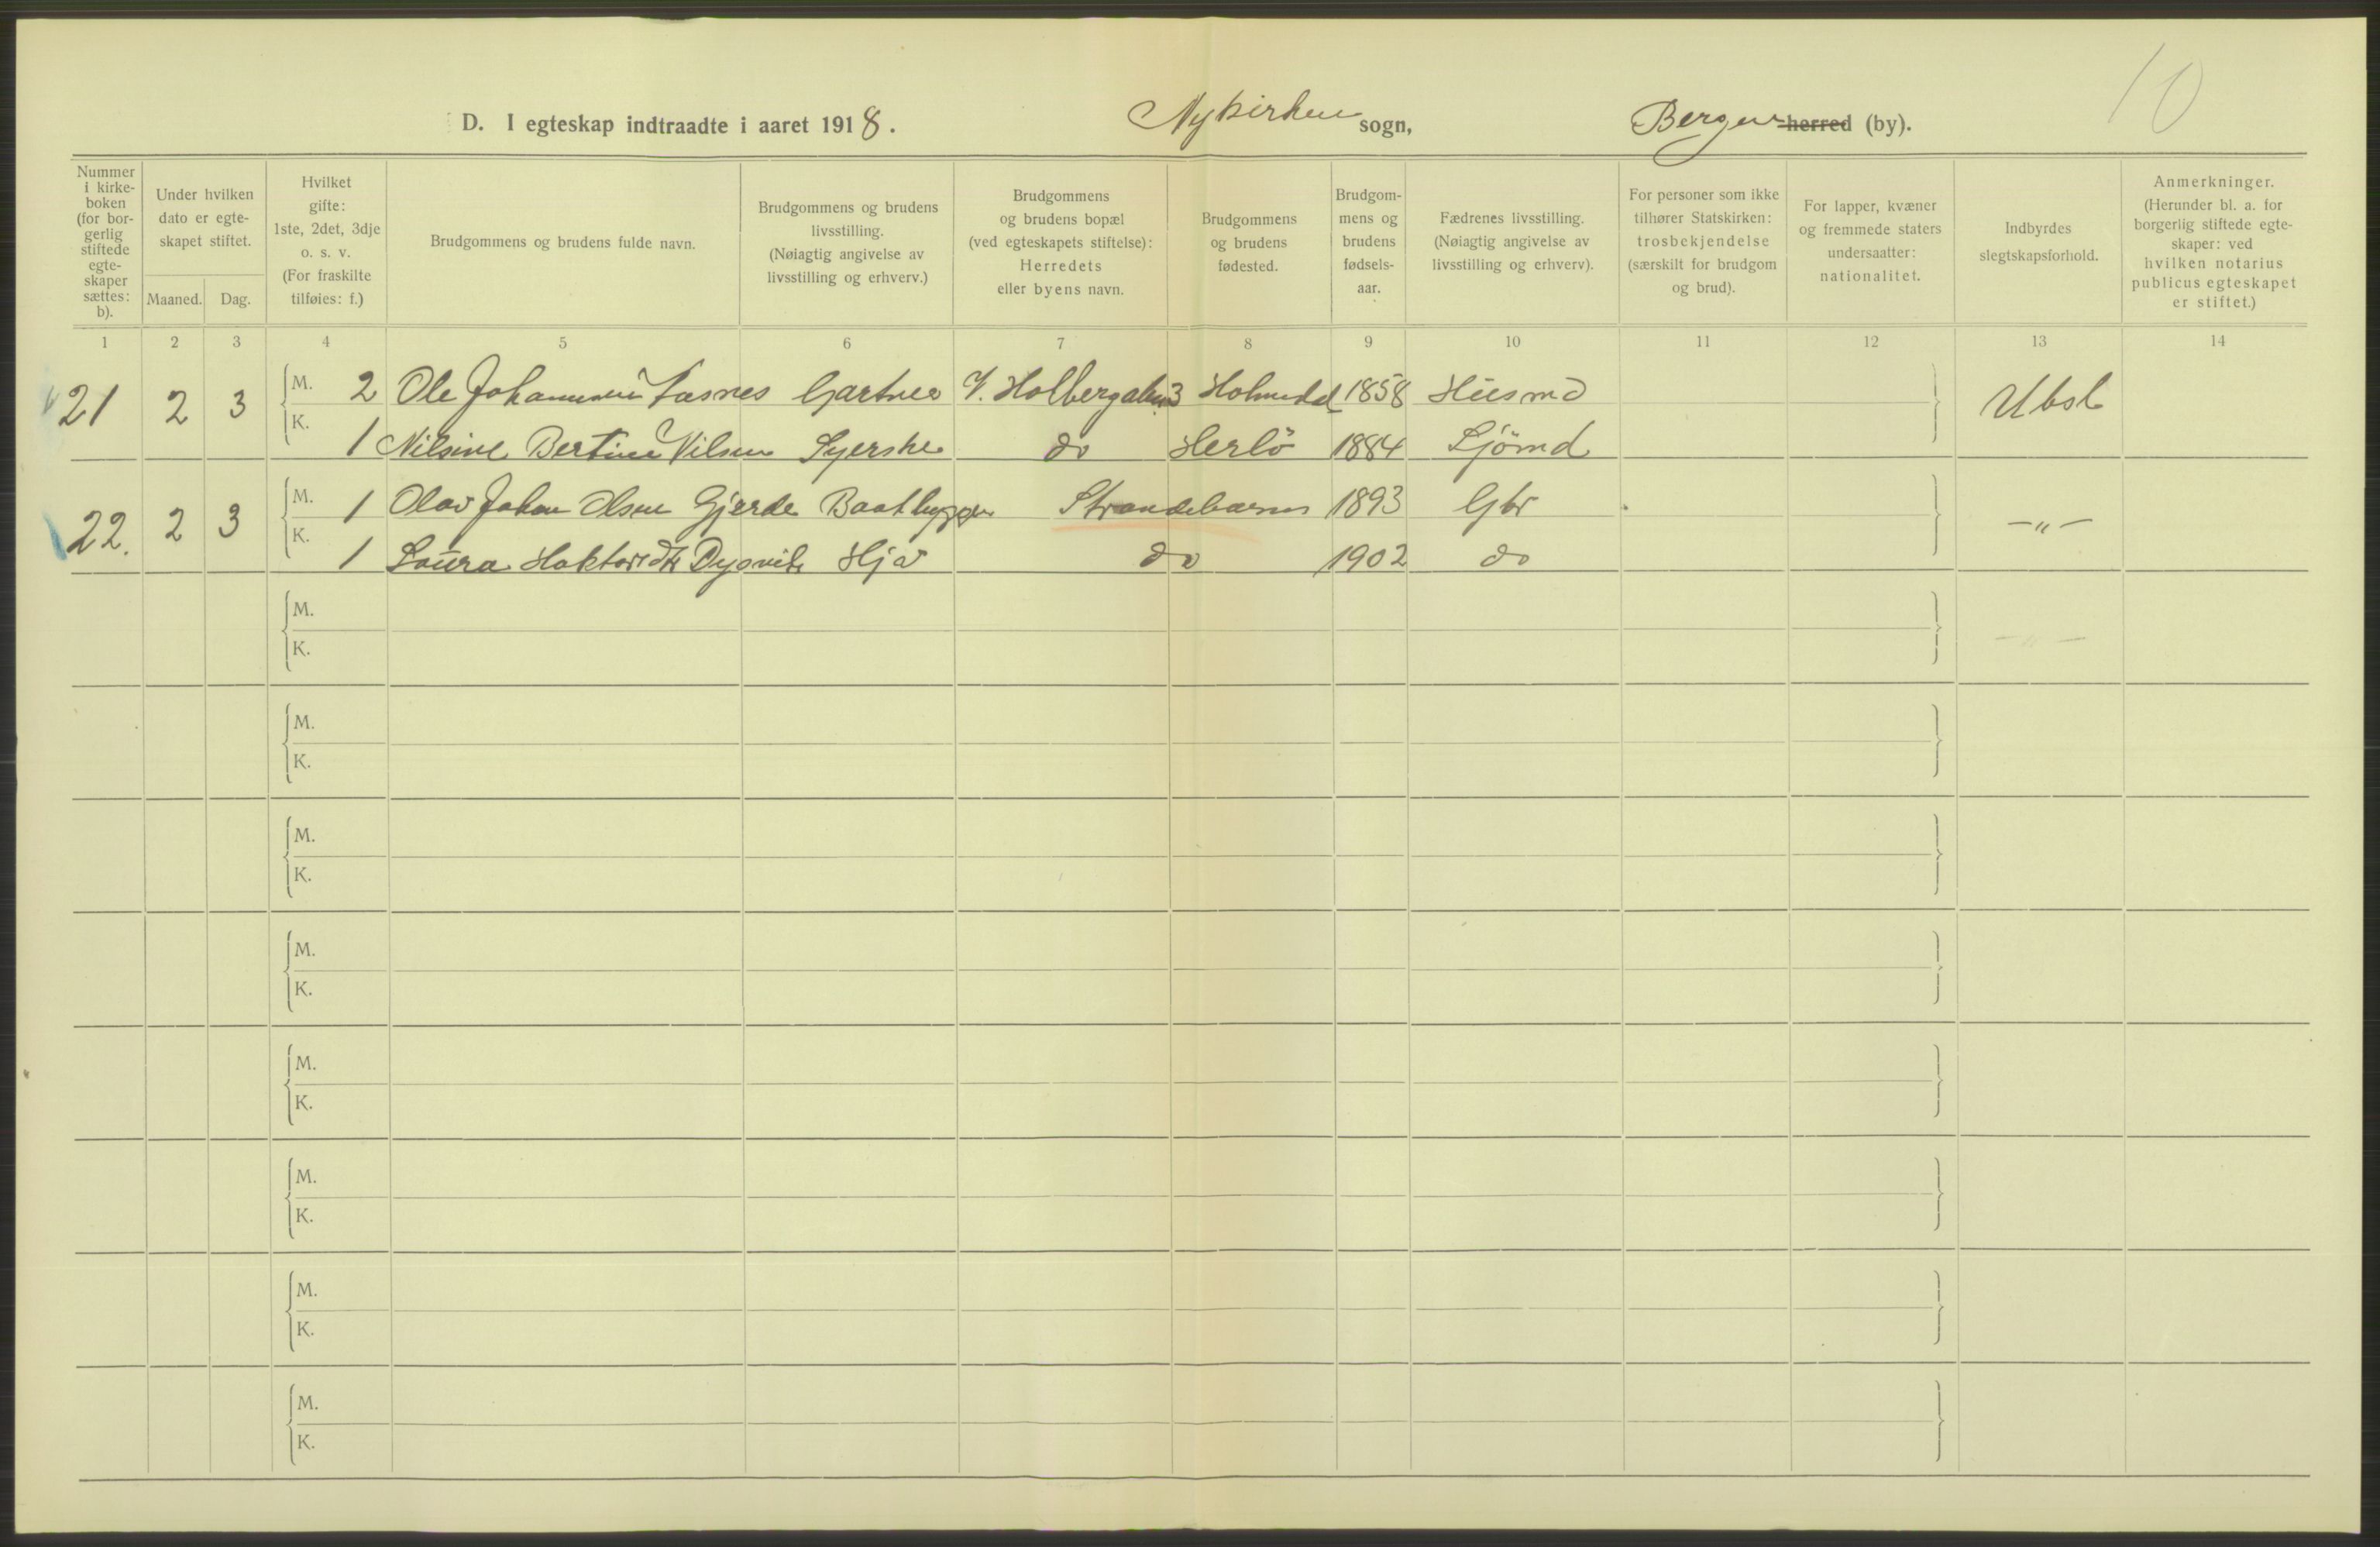 10
D. I egteskap indtraadte i aaret 1918. Nykirken sogn, Bergen herred (by).
Nummer i kirke-boken (for bor-gerlig stiftede egte-skaper sættes: b).
Under hvilken dato er egte-skapet stiftet.
Maaned. Dag.
Hvilket gifte: 1ste, 2det, 3dje o. s. v. (For fraskilte tilføies: f.)
Brudgommens og brudens fulde navn.
Brudgommens og brudens livsstilling. (Nøiagtig angivelse av livsstilling og erhverv.)
Brudgommens og brudens bopæl (ved egteskapets stiftelse): Herredets eller byens navn.
Brudgommens og brudens fødested.
Brudgom-mens og brudens fødsels-aar.
Fædrenes livsstilling. (Nøiagtig angivelse av livsstilling og erhverv).
For personer som ikke tilhører Statskirken: trosbekjendelse (særskilt for brudgom og brud).
For lapper, kvæner og fremmede staters undersaatter: nationalitet.
Indbyrdes slegtskapsforhold.
Anmerkninger. (Herunder bl. a. for borgerlig stiftede egte-skaper: ved hvilken notarius publicus egteskapet er stiftet.)
1 2 3 4 5 6 7 8 9 10 11 12 13 14
21 2 3 M. 2 Ole Johannesen Gartner V. Holbergalm 3 Holmedal 1858 Husmd Ubsl
K. 1 Nilsine Bertine Nilsen Syerske do Herlö 1884 Sjömd
22. 2 3 M. 1 Olav Johan Olsen Gjerde Baatbygger Strandebarm 1893 Gbr —"—
K. 1 Laura Haktorsdtr Dysvik Hja do 1902 do
M.
K. —"—
M.
K.
M.
K.
M.
K.
M.
K.
M.
K.
M.
K.
M.
K.